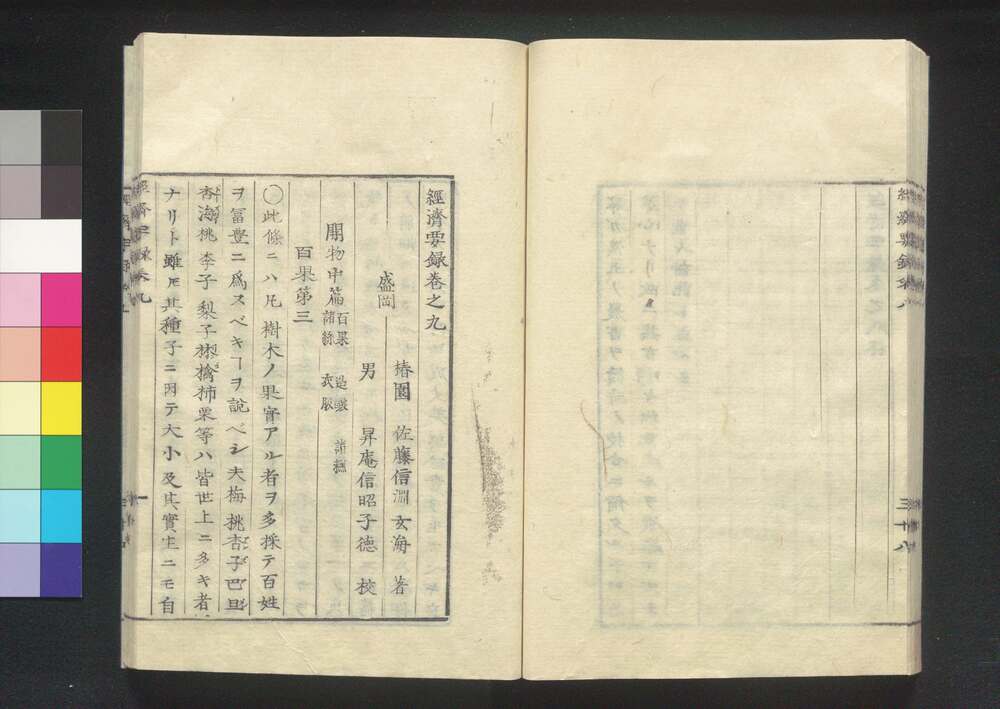 經濟要錄巻之九
盛岡 椿園 佐藤信淵玄海 著
男 昇庵信昭子徳 校
開物中篇 百果 諸絲 造釀 衣服 諸樵
百果第三
〇此條ニハ凡樹木ノ果實アル者ヲ多採テ百姓
ヲ冨豊ニ爲スベキヿヲ説ベシ夫梅桃杏子巴旦
杏海桃李子梨子林擒柿栗等ハ皆世上ニ多キ者
ナリト雖ㇳモ其種子ニ因テ大小及其實生ニモ自
經濟要錄巻九 一